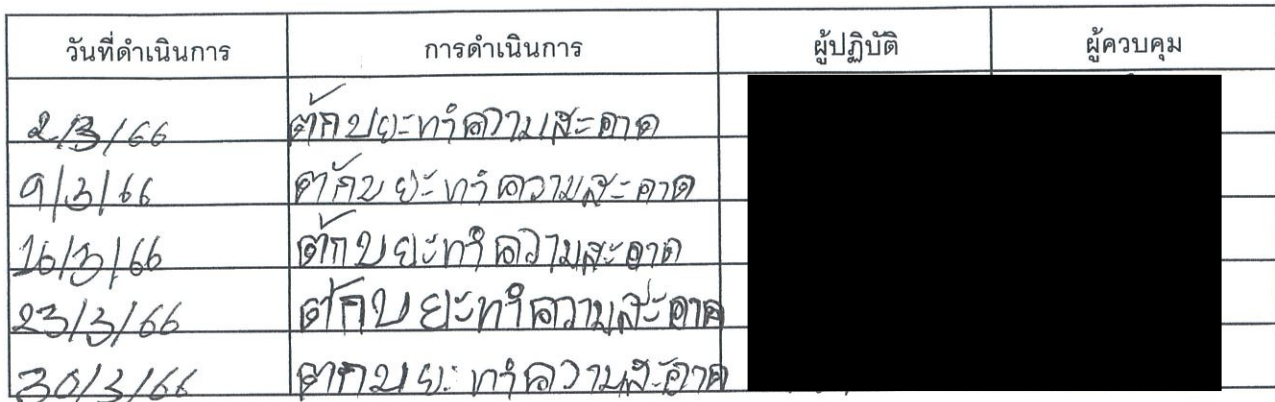 วันที่ดำเนินการ การดำเนินการ ผู้ปฏิบัติ ผู้ควบคุม
2/3/66 ตักขยะทำความสะอาด
9/3/66 ตักขยะทำความสะอาด
16/3/66 ตักขยะทำความสะอาด
23/3/66 ตักขยะทำความสะอาด
30/3/66 ตักขยะทำความสะอาด